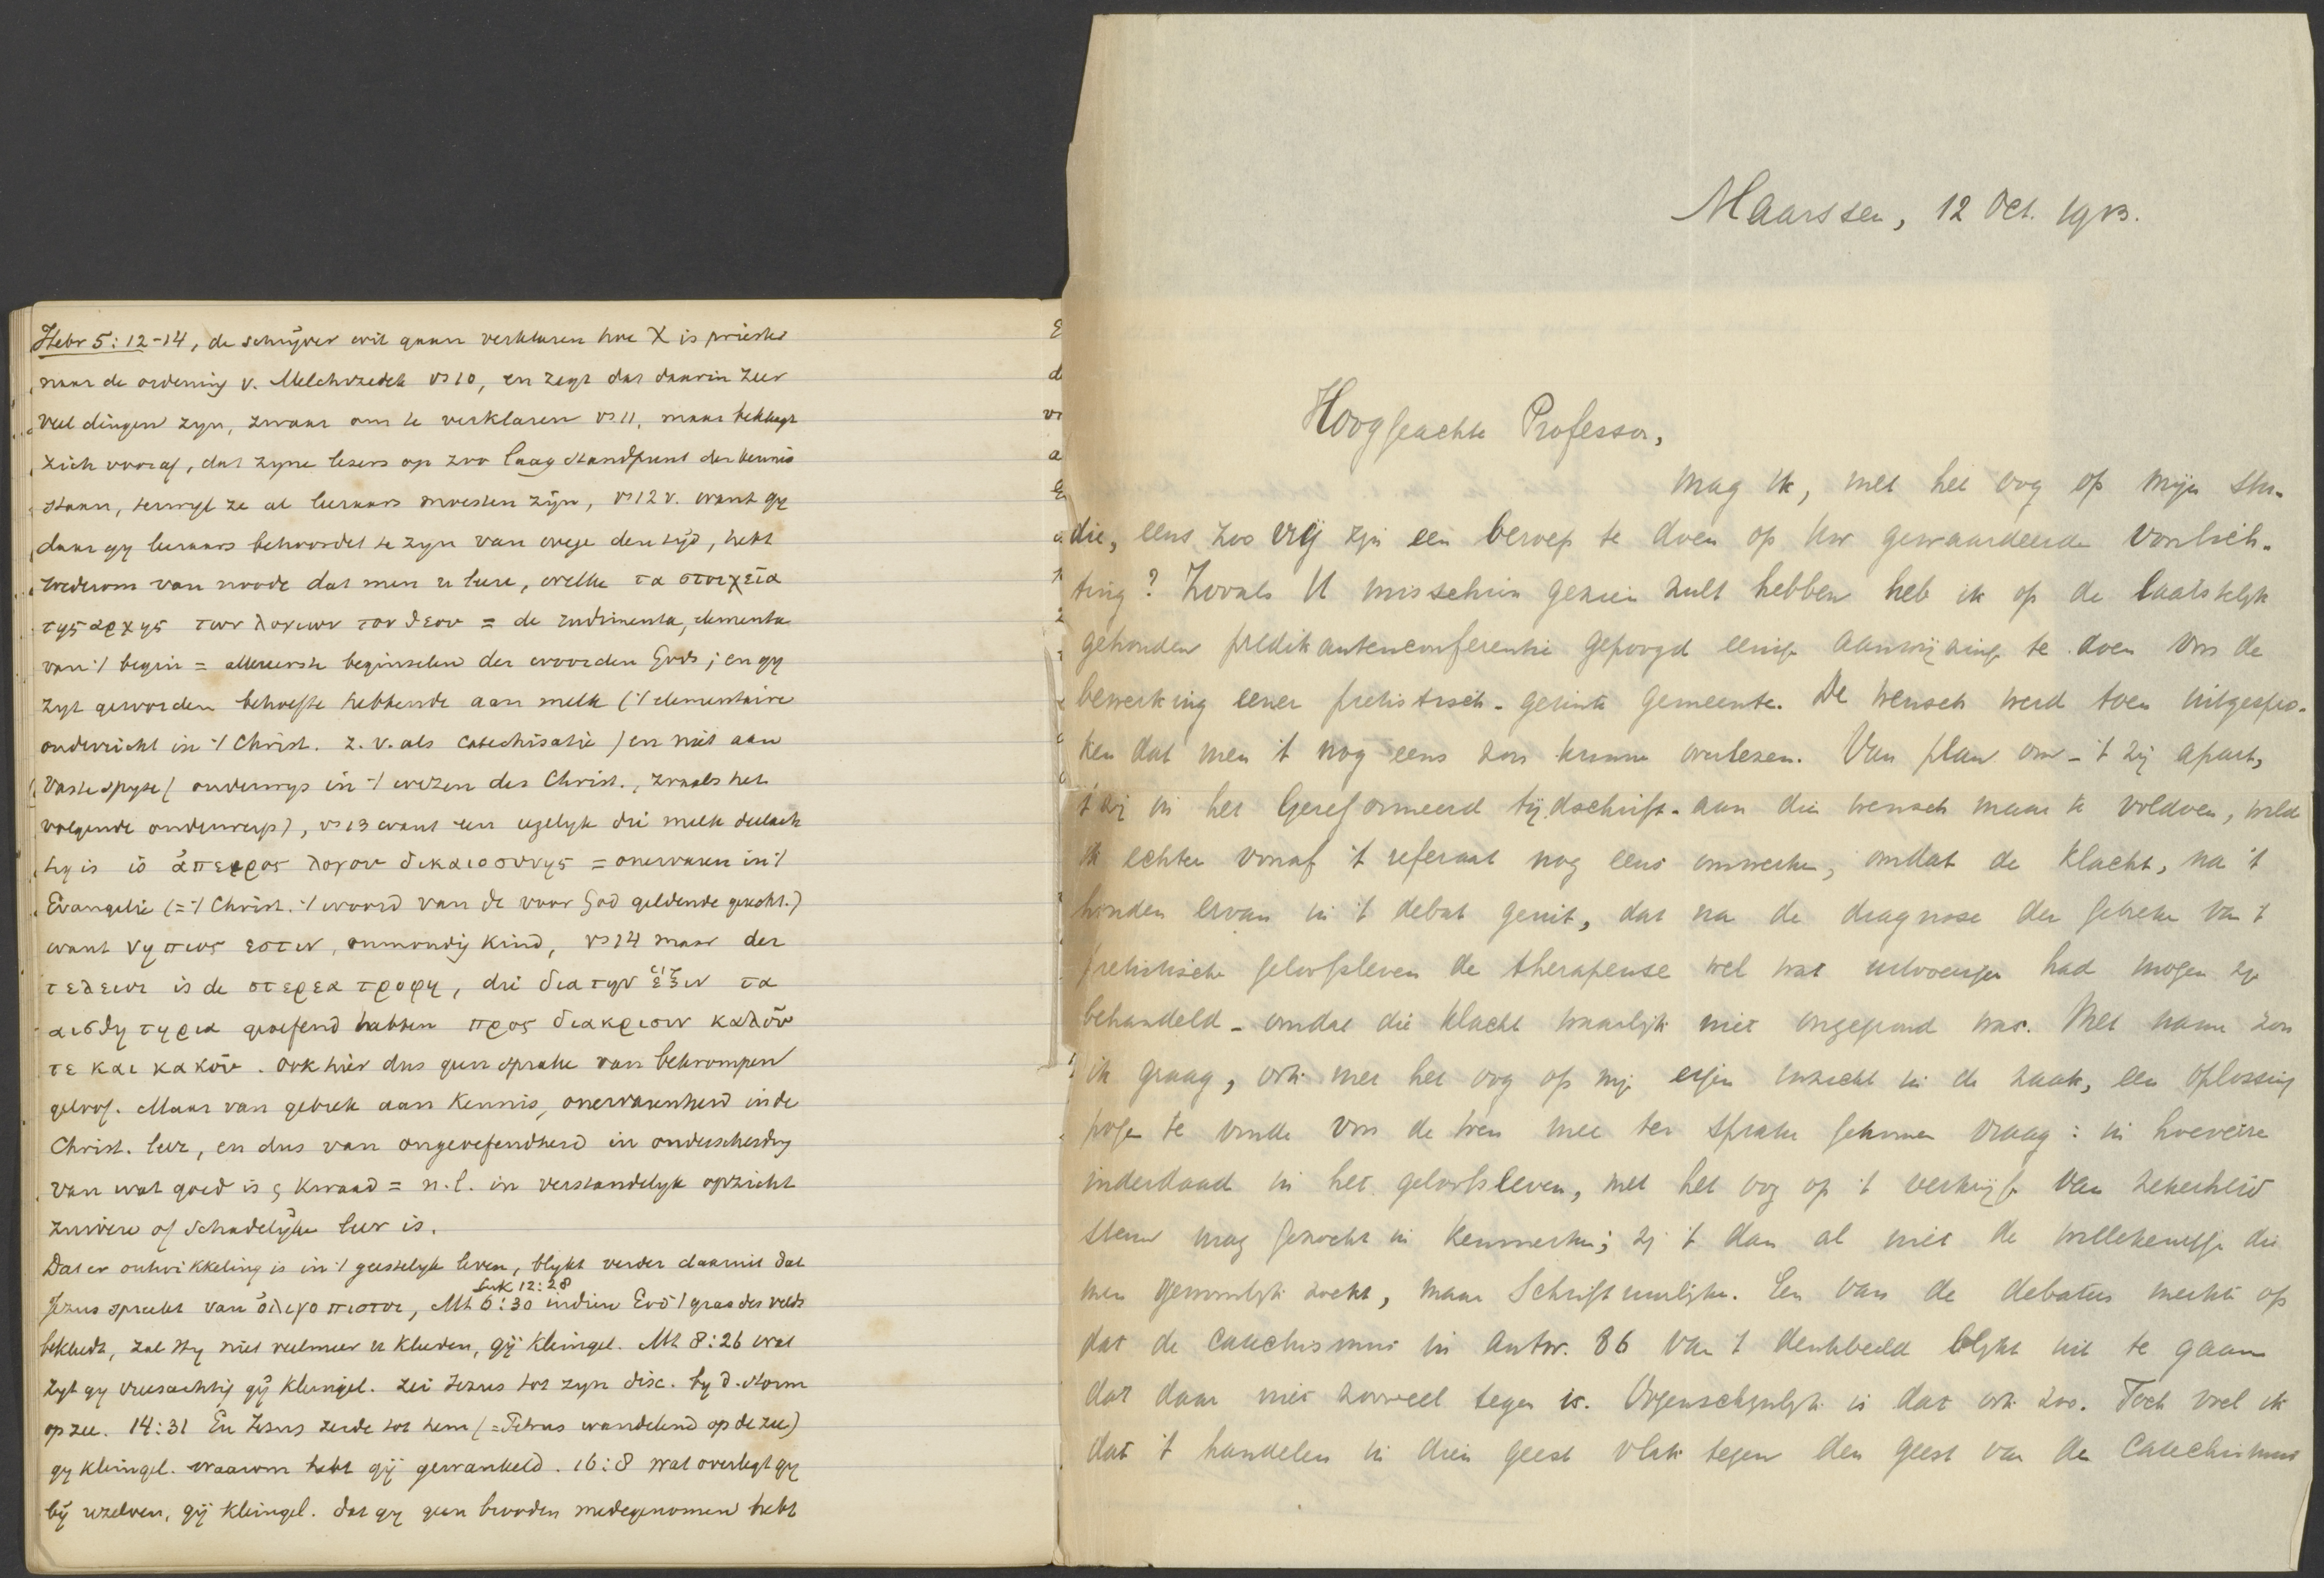 Hebr 5:12-14, de schrijver wil gaan verklaren hoe X is priester
naar de ordening v. Melchizedek vs 10, en zegt dat daarin zeer
veel dingen zyn, zwaar om te verklaren vs 11, maar beklaagt
zich vooraf, dat zyne lezers op zoo laag standpunt der kennis
staan, terwyl ze al leeraars moesten zijn, vs 12 v. want gy
daar gy leeraars behoordet te zyn van wege den tijd, hebt
wederom van noode dat men u leere, welke τα στοιχεῖα
της αρχης των λογιων του θεου = de rudimenta, elementa
van 't begin = allereerste beginselen der woorden Gods; en gy
zyt geworden behoefte hebbende aan melk ('t elementaire
onderricht in 't Christ. z.v. als catechisatie) en niet aan
vaste spyse (onderwys in 't wezen des Christ., zooals het
volgende onderwerp), vs 13 want een iegelyk die melk deelach-
tig is is ἄπειρος λογου δικαιοσυνης = onervaren in 't
Evangelie (= 't Christ. 't woord van de voor God geldende gerecht.)
want νηπιος εστιν, onmondig kind, vs 14 maar der
τελειων is de στερεα τροφη, die δια την ἕξιν τα
αισθητηρια geoefend hebben προς διακρισιν καλοῦ
τε και κακοῦ. Ook hier dus geen sprake van bekrompen
geloof. Maar van gebrek aan kennis, onervarenheid in de
Christ. leer, en dus van ongeoefendheid in onderscheiding
van wat goed is & kwaad = n.l. in verstandelyk opzicht
zuivere of schadelijke leer is.
Dat er ontwikkeling is in 't geestelyk leven, blykt verder daaruit dat
Luk 12:28
Jezus spreekt van ὀλιγοπιστοι, Mt 6:30 indien God 't gras des velds
bekleedt, zal Hy niet veelmeer u kleeden, gij kleingel. Mt 8:26 wat
zyt gy vreesachtig gij kleingel. zei Jezus tot zyn disc. by d. storm
op zee. 14:31 En Jezus zeide tot hem (= Petrus wandelend op de zee)
gy kleingel. waarom hebt gij gewankeld. 16:8 wat overlegt gy
bij uzelven, gij kleingel. dat gy geen brooden medegenomen hebt
Maarssen, 12 Oct. 1913.
Hooggeachte Professor,
Mag ik, met het oog op mijn stu-
die, eens zoo vrij zijn een beroep te doen op Uw gewaardeerde voorlich-
ting? Zooals U misschien gezien zult hebben heb ik op de laatstelijk
gehouden predikantenconferentie gepoogd eenige aanwijzing te doen voor de
bewerking eener piëtistisch-getinte gemeente. De wensch werd toen uitgespro-
ken dat men 't nog eens zou kunnen overlezen. Van plan om - 't zij apart,
't zij in het Gereformeerd tijdschrift - aan dien wensch maar te voldoen, wilde
ik echter vooraf 't referaat nog eens omwerken, omdat de klacht, na 't
houden ervan in 't debat geuit, dat na de diagnose der gebreken van 't
piëtistische geloofsleven de therapeuse wel wat uitvoeriger had mogen zijn
behandeld - omdat die klacht waarlijk niet ongegrond was. Met name zou
ik graag, ook met het oog op mijn eigen inzicht in de zaak, een oplossing
pogen te vinden voor de toen mee ter sprake gekomen vraag: in hoeverre
inderdaad in het geloofsleven, met het oog op 't verkrijgen van zekerheid
steun mag gezocht in kenmerken; zij 't dan al niet de willekeurige die
men gewoonlijk zoekt, maar Schriftuurlijke. Een van de debaters merkte op
dat de Catechismus in Antw. 86 van 't denkbeeld blijkt uit te gaan
dat daar niet zooveel tegen is. Oogenschijnlijk is dat ook zoo. Toch voel ik
dat 't handelen in dien geest vlak tegen den geest van den Catechismus